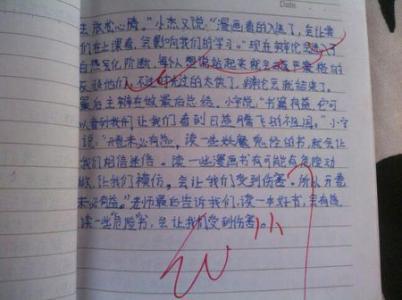 Date
去放松心腾。"小杰又说："漫画看的入迷了，会让我
们在上课看，会影响我们的学习。"现在辩论会进入了
白热变化阶断，每个人想说站起来就
反该他们，不过时光过的太快了，辩论会就结束了。
最后主辩在做最后总结。小学说："书富有益，它可
以看到我们让我们看到日益腾飞的祖国。"小宇
说："开卷未必有益，读一些妖魔鬼怪的书，就会让
我们相信迷信。读一些漫画书有可能有危险动
做，让我们模仿，会让我们受到伤害。所以开卷
未必有益。"老师最后告诉我们，读一本好书，会有益
读一些"危险"书，会让我们受到伤害。